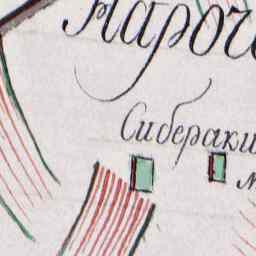 Нароч
Сибераки
м